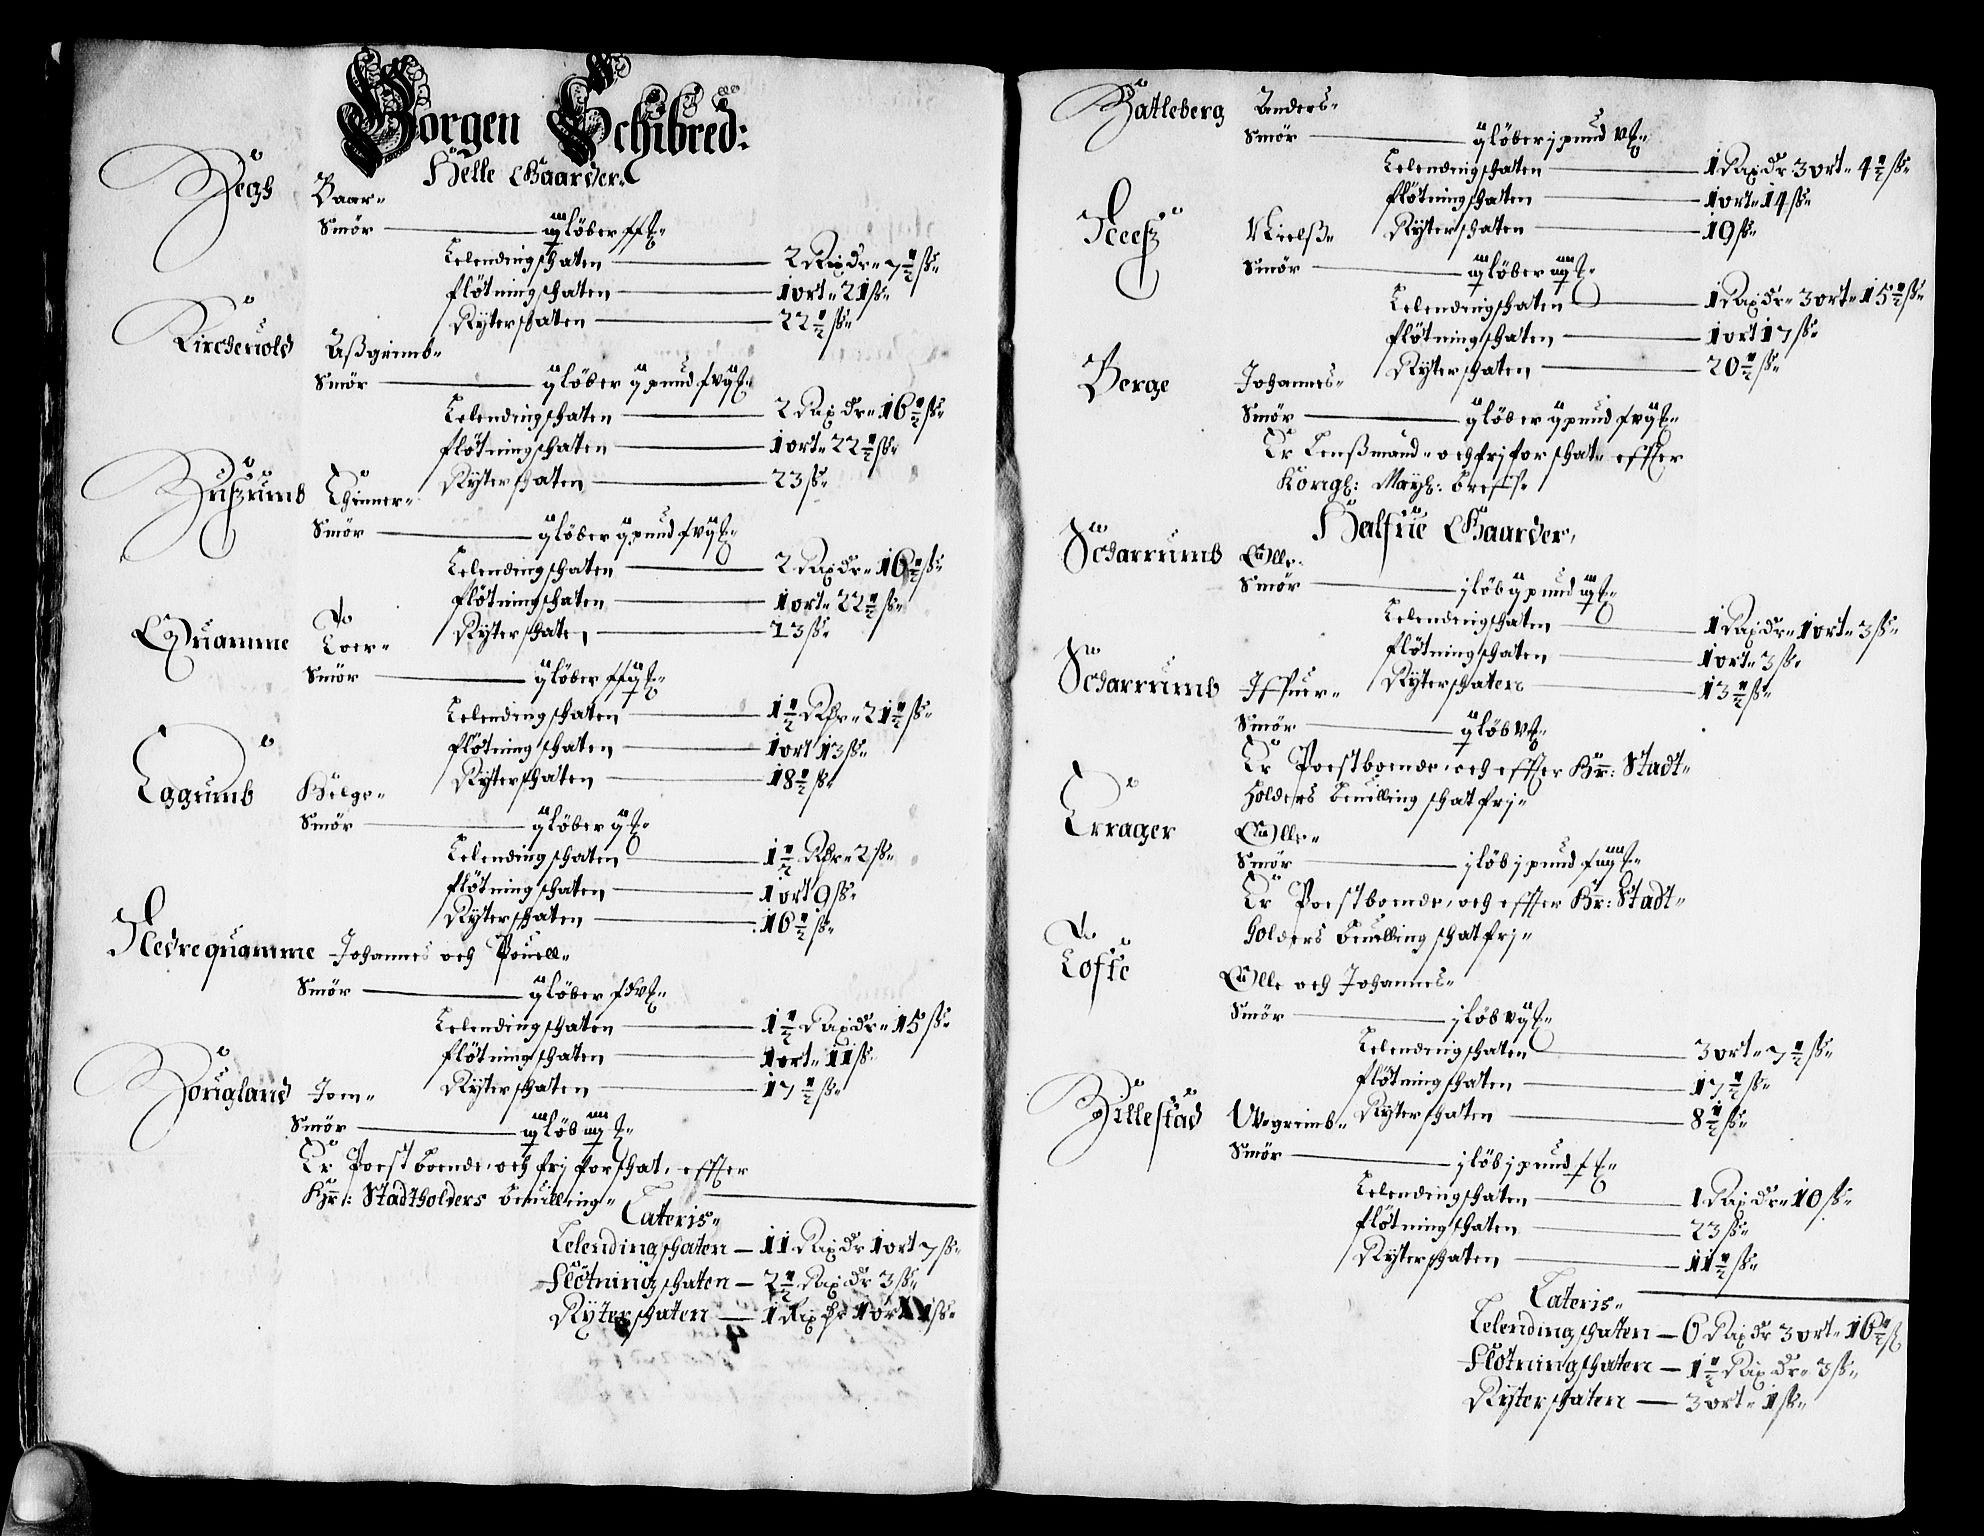 Borgen Schibred:
Helle Gaarder
Hegh Baar
Smör löber
Lelendingschaten 2 Rixdr 7½ ß
flötningschaten 1 ort 21 ß
Ryterschaten 22½ ß
Kircheuold Aßgrimb
Smör ij löber ij pund
Lelendingschaten 2 Rixdr 16½ ß
flötningschaten 1 ort 22½ ß
Ryterschaten 23 ß
Gunner
Smör ij löber ij pund
Lelendingschaten 2 Rixdr 16½ ß
flötningschaten 1 ort 22½ ß
Ryterschaten 23 ß
Quamme Loer
Smör ij löber
Lelendingschaten 1½ Rdr 21½ ß
flötningschaten 1 ort 13 ß
Ryterschaten 18½ ß
Eggumb Helge
Smör ij löber
Lelendingschaten 1½ Rdr 2 ß
flötningschaten 1 ort 9 ß
Ryterschaten 16½ ß
Nedrequamme Johannes och Pouell
Smör ij löber
Lelendingschaten 1½ Rixdr 15 ß
flötningschaten 1 ort 11 ß
Ryterschaten 17½ ß
Hougland Jom
Smör löb
Er Poestboende, och frj for schat, effter
Hr: Stadtholders beuilling
Lateris
Lelendingschaten 11 Rixdr 1 ort 7 ß
Flötningschaten 2½ Rixdr 3 ß
Ryterschaten 1 Rixdr 1 ort 1 ß
Hatleberg Anders
Smör ij löber j pund
Lelendingschaten 1 Rixdr 3 ort 4½ ß
flötningschaten 1 ort 14 ß
Ryterschaten 19 ß
Nielß
Smör löber
Lelendingschaten 1 Rixdr 3 ort 15½ ß
flötningschaten 1 ort 17 ß
Ryterschaten 20½ ß
Berge Johannes
Smör ij löber ij pund
Er Lenßmand och frj for schat effter
Kongl: Mayh: breff
Halfue Gaarder,
Scharrumb Olle
Smör j löb ij pund
Lelendingschaten 1 Rixdr 1 ort 3 ß
flötningschaten 1 ort 3 ß
Ryterschaten 13½ ß
Scharrumb Iffuer
Smör ij löb
Er Poestboende, och effter Hr: Stadt
holders beuilling schatfrj
Errager Olle
Smör j löb j pund
Er Poestboende, och effter Hr: Stadt
holders beuilling schatfrj
Lofte Olle och Johannes
Smör j löb
Lelendingschaten 3 ort 7½ ß
flötningschaten 17½ ß
Ryterschaten 8½ ß
Hillestad Wegrimb
Smör j löb j pund
Lelendingschaten 1 Rixdr 10 ß
flötningschaten 23 ß
Ryterschaten 11½ ß
Lateris
Lelendingschaten 6 Rixdr 3 ort 16½ ß
Flötningschaten 1½ Rixdr 3 ß
Ryterschaten 3 ort 1 ß